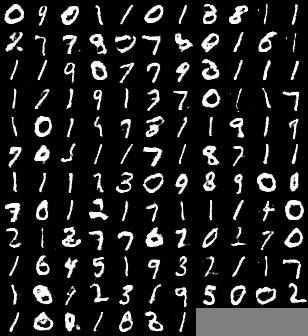 0 9 0 1 1 0 1 3 8 1 1
2 7 7 9 0 7 8 0 1 6 1
1 1 9 0 7 7 9 8 1 1 1
1 7 1 9 1 3 7 0 1 1 7
1 0 1 4 7 8 1 1 9 1 7
7 0 5 1 1 7 1 8 7 1 1
1 1 1 2 3 0 9 8 9 0 0
7 0 1 2 1 7 1 1 1 4 0
2 1 2 7 7 6 2 0 2 7 0
1 6 4 5 1 9 3 2 1 1 7
1 8 1 2 3 1 9 5 0 0 2
1 0 0 1 0 3 1